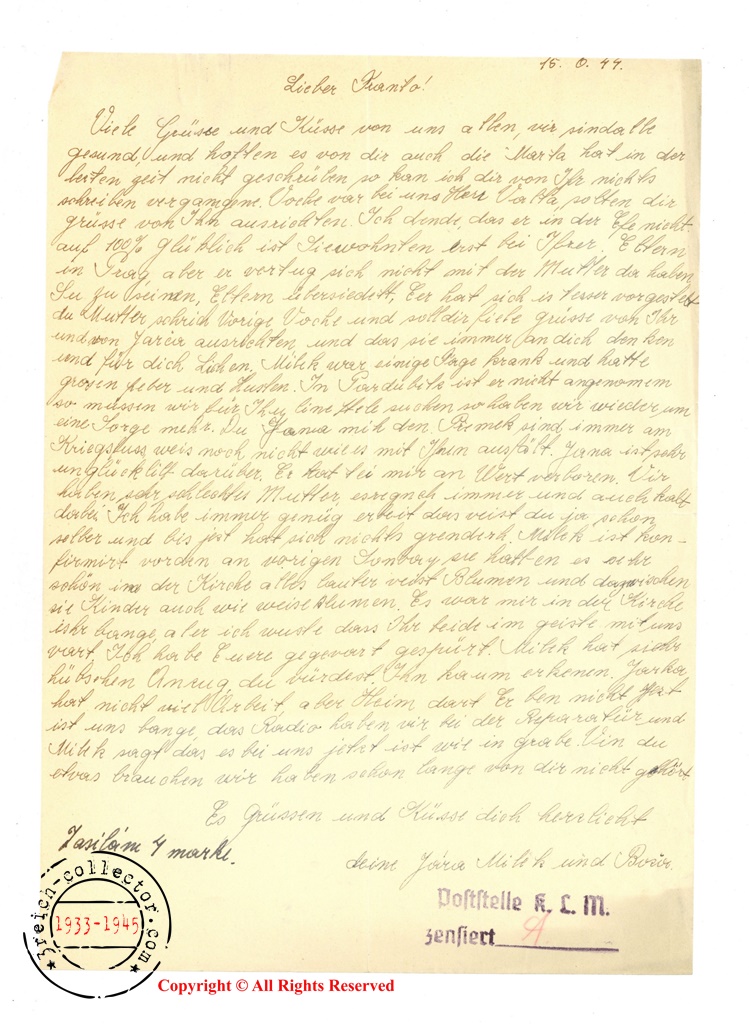 15. 6. 44.
Lieber Franto!
Viele Grüsse und Küsse von uns allen, vir sind alle
gesund, und hoften es von dir auch die Marta hat in der
lesten zeit nicht geschrüben so kan ich dir von Ihr nichts
schreiben vergangene. Voche var bei uns Herr Valta, solten dir
grüsse von Ihn ausrichten. Ich denke, das er in der Ehe nicht
auf 100% Glüklich ist Sie wohnten erst bei Ihrer, Eltern
in Prag, aber er vertug sich nicht mit der Mutter da haben
Su zu seinen, Eltern übersiedelt, Eer hat sich es besser vorgestelt
du Mutter schrieb Vorige Voche und soll dir fiele grüsse von Ihr
und von Jarča ausrichten, und das sie immer an dich denken
und für dich, Milek war einige Tage krank und hatte
grosen feber und Husten. In Pardubits ist er nicht angenomen
so müssen wir für Ihn eine stele suchen so haben wir wieder, um
eine Sorge mehr. Du Jana mit den Přemek sind immer am
Kriegsfuss, weis noch nicht wie es mit Ihnen ausfält. Jana ist sehr
unglücklich darüber. Er hat bei mir an Wert verloren. Vir
haben sehr schlechtes Wutter, es regnet immer und auch kalt
dabei. Ich habe immer genüg erbeit das veist du ja schon
selber und bis jest hat sich nichts geendert. Milek ist kon-
firmirt vorden an vorigen Sontag, sie hatten es sehr
schön in der Kirche alles lauter veist Blumen und dazwischen
sie Kinder auch wie weise blumen. Es war mir in der Kirche
sehr bange, aber ich wuste dass Ihr beide im geiste mit uns
vart. Ich habe Euere gegevart gespürt. Milek hat siehr
hübschen Anzug, du bürdest, Ihn kaum erkenen. Jarka
hat nicht viel Arbeit, aber Heim dart Er ben nicht Jest
ist uns bange, das Radio haben vir bei der Reparatür und
Milek sagt das es bei uns jetzt ist wie in grabe. Ven du
etvas brauchen wir haben schon lange von dir nicht gehört.
Es Grüssen und Küsse dich herzlicht
deine Jára Milek und
Zasílám 4 marke.
Poststelle K. L. M.
zensiert A
3reich-collector.com
1933-1945
Copyright © All Rights Reserved